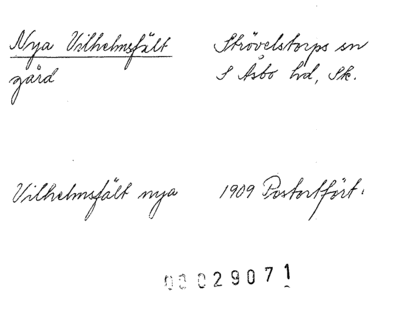 Nya Vilhelmsfält Strövelstorps sn
gård S Åsbo hd, Sk.
Vilhelmsfält nya 1909 Postortfört.
00029071